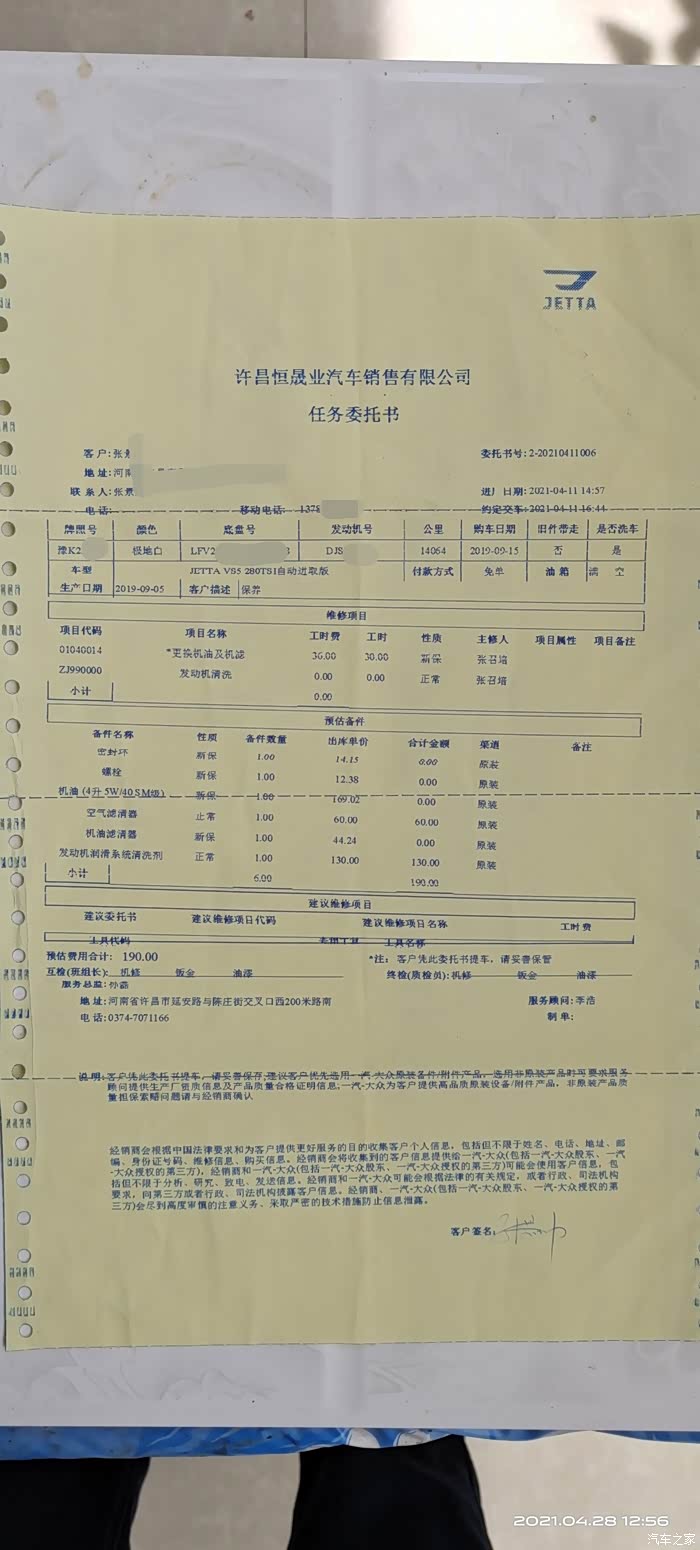 JETTA
许昌恒晟业汽车销售有限公司
任务委托书
客户:张 委托书号:2-20210411006
地址:河南
联系人:张 进厂日期:2021-04-11 14:57
电话: 移动电话: 1378 约定交车:2021-04-11 16:44
牌照号 颜色 底盘号 发动机号 公里 购车日期 旧件带走 是否洗车
豫K2 极地白 LFV2 3 DJS 14064 2019-09-15 否 是
车型 JETTA VS5 280TSI自动进取版 付款方式 免单 油箱 满 空
生产日期 2019-09-05 客户描述 保养
维修项目
项目代码 项目名称 工时费 工时 性质 主修人 项目属性 项目备注
01040014 *更换机油及机滤 30.00 30.00 新保 张召培
ZJ990000 发动机清洗 0.00 0.00 正常 张召培
小计 0.00
预估备件
备件名称 性质 备件数量 出库单价 合计金额 渠道 备注
密封环 新保 1.00 14.15 0.00 原装
螺栓 新保 1.00 12.38 0.00 原装
机油 (4升 5W/40 SM级) 新保 1.00 169.02 0.00 原装
空气滤清器 正常 1.00 60.00 60.00 原装
机油滤清器 新保 1.00 44.24 0.00 原装
发动机润滑系统清洗剂 正常 1.00 130.00 130.00 原装
小计 6.00 190.00
建议维修项目
建议委托书 建议维修项目代码 建议维修项目名称 工时费
工具代码 工具名称
预估费用合计: 190.00 *注: 客户凭此委托书提车, 请妥善保管
互检(班组长): 机修 钣金 油漆 终检(质检员): 机修 钣金 油漆
服务总监: 孙磊
地址:河南省许昌市延安路与陈庄街交叉口西200米路南 服务顾问:李浩
电话:0374-7071166 制单:
说明:客户凭此委托书提车, 请妥善保存;建议客户优先选用一汽-大众原装备件/附件产品, 选用非原装产品时可要求服务
顾问提供生产厂资质信息及产品质量合格证明信息;一汽-大众为客户提供高品质原装设备/附件产品, 非原装产品质
量担保索赔问题请与经销商确认
经销商会根据中国法律要求和为客户提供更好服务的目的收集客户个人信息, 包括但不限于姓名、电话、地址、邮
编、身份证号码、维修信息、购买信息。经销商会将收集到的客户信息提供给一汽-大众(包括一汽-大众股东、一汽
-大众授权的第三方), 经销商和一汽-大众(包括一汽-大众股东、一汽-大众授权的第三方)可能会使用客户信息, 包
括但不限于分析、研究、致电、发送信息。经销商和一汽-大众可能会根据法律的有关规定, 或者行政、司法机构
要求, 向第三方或者行政、司法机构披露客户信息。经销商、一汽-大众(包括一汽-大众股东、一汽-大众授权的第
三方)会尽到高度审慎的注意义务、采取严密的技术措施防止信息泄露。
客户签名:
2021.04.28 12:56
汽车之家